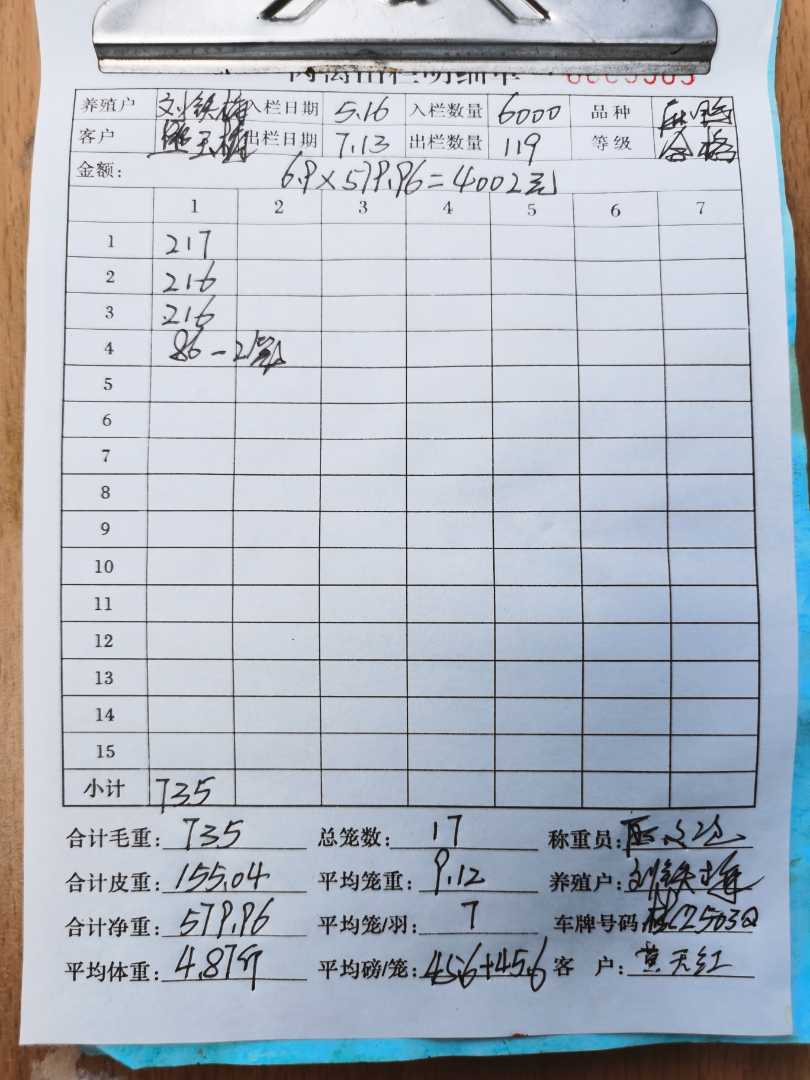 肉禽出栏明细单 0005563
养殖户 刘铁梅 入栏日期 5.16 入栏数量 6000 品种
客户 出栏日期 7.13 出栏数量 119 等级 合格
金额: 6.9×579.96=4002元
1 2 3 4 5 6 7
1 217
2 216
3 216
4 86-2笼
5
6
7
8
9
10
11
12
13
14
15
小计 735
合计毛重: 735 总笼数: 17 称重员:
合计皮重: 155.04 平均笼重: 9.12 养殖户: 刘铁梅
合计净重: 579.96 平均笼/羽: 7 车牌号码:
平均体重: 4.87斤 平均磅/笼: 45.6+45.6 客 户: 黄天红